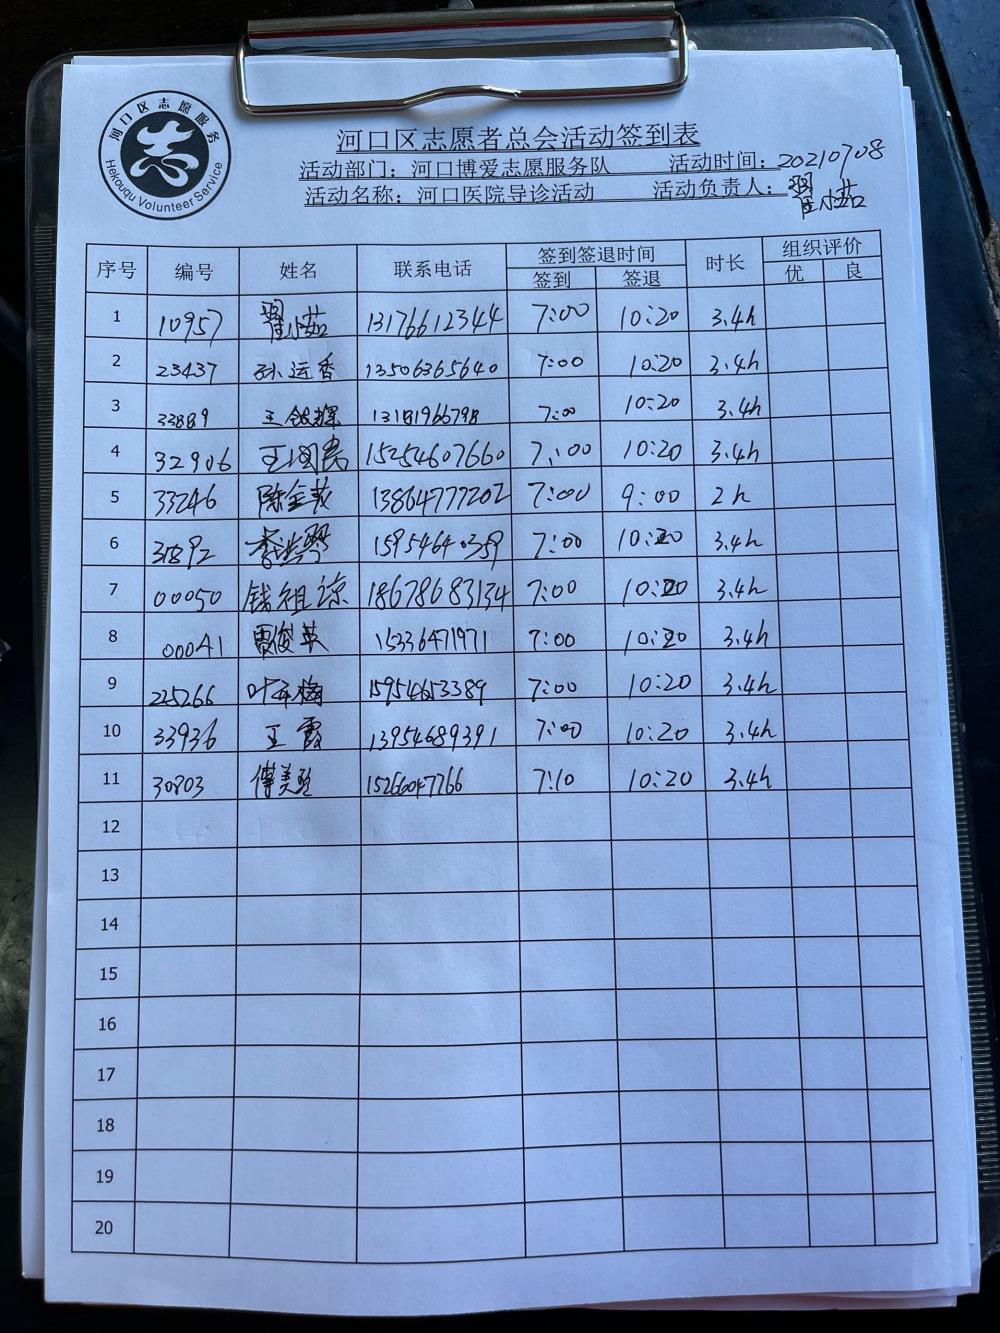 河口区志愿服务
志
Hekouqu Volunteer Service
河口区志愿者总会活动签到表
活动部门：河口博爱志愿服务队 活动时间：20210708
活动名称：河口医院导诊活动 活动负责人：翟小茹
序号 编号 姓名 联系电话 签到签退时间 时长 组织评价
签到 签退 优 良
1 10957 翟小茹 13176612344 7:00 10:20 3.4h
2 23437 孙运香 13506365640 7:00 10:20 3.4h
3 33889 王 13181966798 7:00 10:20 3.4h
4 32906 王国 15254607660 7:00 10:20 3.4h
5 33246 陈金 13864777202 7:00 9:00 2h
6 31892 李 15954640359 7:00 10:20 3.4h
7 00050 钱祖谅 18678683134 7:00 10:20 3.4h
8 00041 贾俊英 15336471971 7:00 10:20 3.4h
9 225266 叶 梅 15954653389 7:00 10:20 3.4h
10 33936 王霞 13954689391 7:00 10:20 3.4h
11 30803 傅美 15266047766 7:10 10:20 3.4h
12
13
14
15
16
17
18
19
20